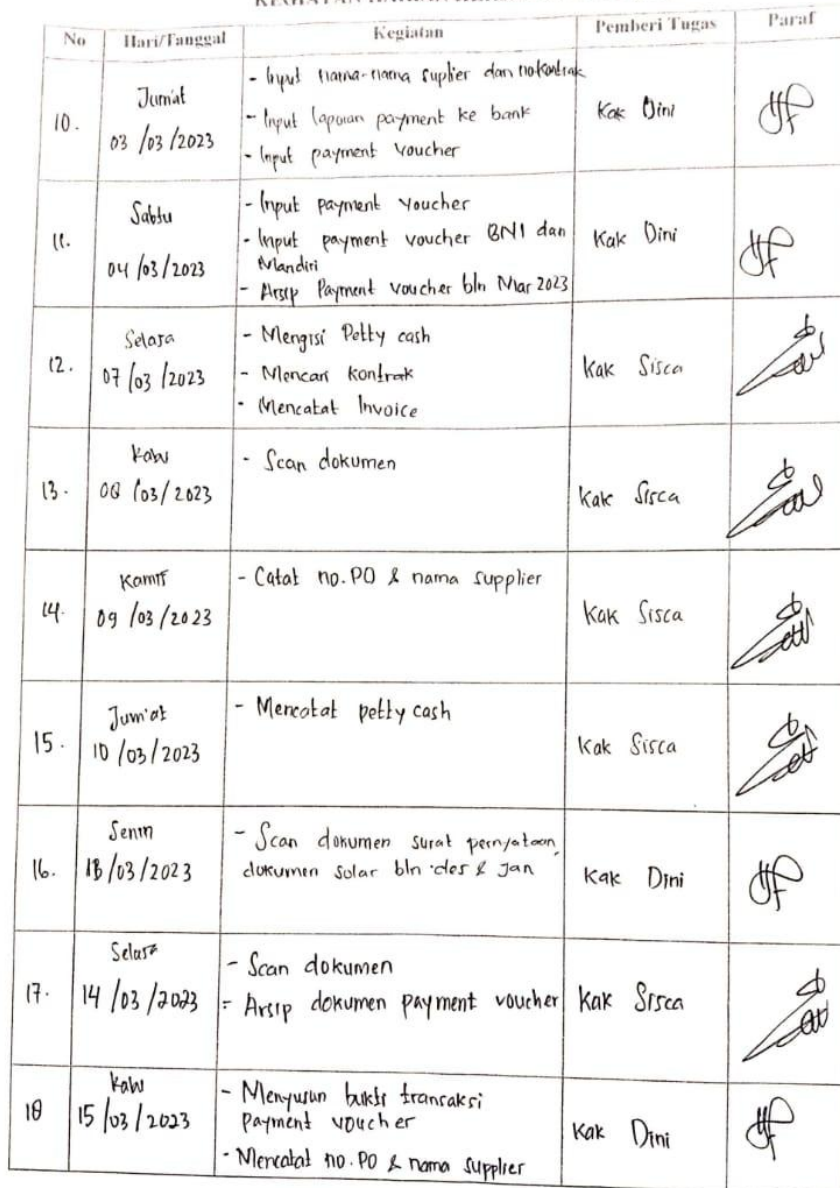 No Hari/Tanggal Kegiatan Pemberi Tugas Paraf
10. Jum'at 03/03/2023
- Input nama-nama suplier dan no kontrak
- Input laporan payment ke bank
- Input payment voucher
Kak Dini
11. Sabtu 04/03/2023
- Input payment voucher
- Input payment voucher BNI dan
Mandiri
- Arsip Payment voucher bln Mar 2023
Kak Dini
12. Selasa 07/03/2023
- Mengisi Petty cash
- Mencari kontrak
- Mencatat Invoice
Kak Sisca
13. Rabu 08/03/2023
- Scan dokumen
Kak Sisca
14. Kamis 09/03/2023
- Catat no.PO & nama supplier
Kak Sisca
15. Jum'at 10/03/2023
- Mencatat petty cash
Kak Sisca
16. Senin 13/03/2023
- Scan dokumen surat pernyataan,
dokumen solar bln des & Jan
Kak Dini
17. Selasa 14/03/2023
- Scan dokumen
- Arsip dokumen payment voucher
Kak Sisca
18 Rabu 15/03/2023
- Menyusun bukti transaksi
payment voucher
- Mencatat no.PO & nama supplier
Kak Dini